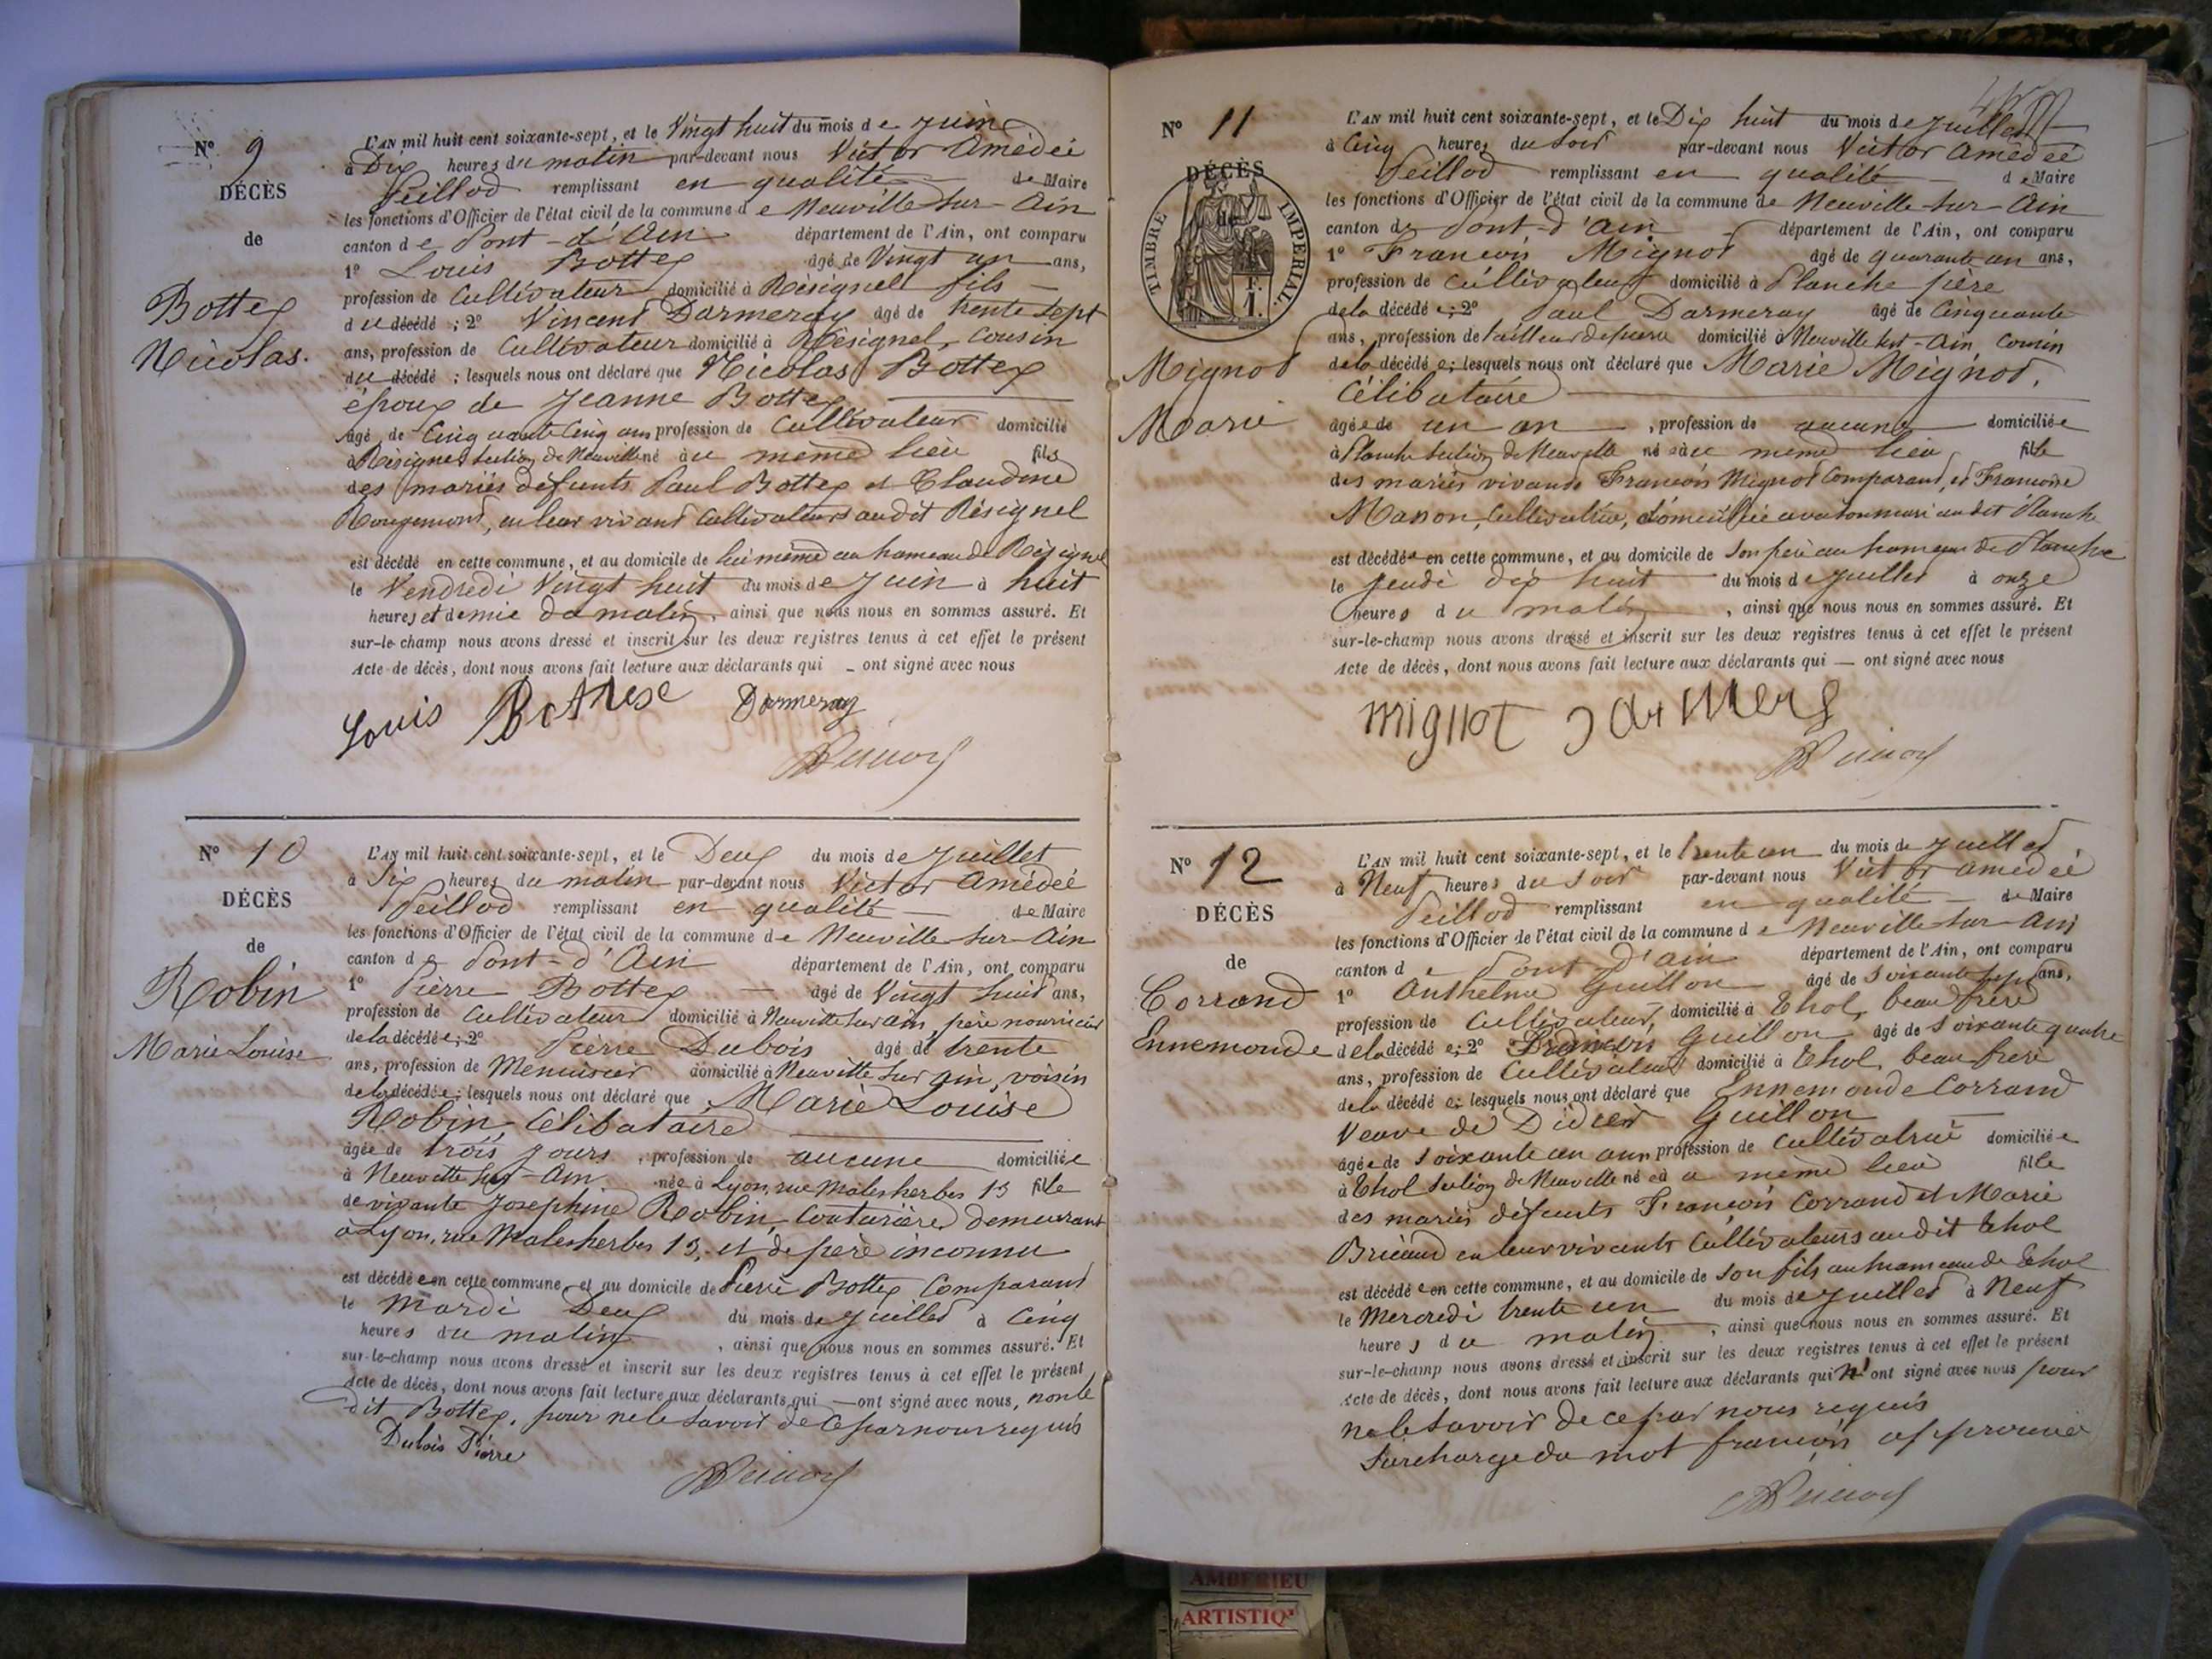 Nº 9
DÉCÈS
de
Bottex
Nicolas.
L'AN mil huit cent soixante-sept, et le Vingt huit du mois de Juin
à Dix heures du matin par-devant nous Victor Amédée
Peillod remplissant en qualité de Maire
les fonctions d'Officier de l'état civil de la commune de Neuville sur Ain
canton de Pont-d'Ain département de l'Ain, ont comparu
1º Louis Bottex âgé de Vingt un ans,
profession de Cultivateur domicilié à Résignel fils
du décédé ; 2º Vincent Darmeray âgé de trente sept
ans, profession de Cultivateur domicilié à Résignel, Cousin
du décédé ; lesquels nous ont déclaré que Nicolas Bottex
époux de Jeanne Bottex
âgé de Cinquante Cinq ans profession de Cultivateur domicilié
à Résignel section de Neuville né au même lieu fils
des mariés défunts Paul Bottex et Claudine
Rougemont, en leur vivant Cultivateurs audit Résignel
est décédé en cette commune, et au domicile de lui même au hameau de Résignel
le Vendredi Vingt huit du mois de Juin à huit
heures et demie du matin, ainsi que nous nous en sommes assuré. Et
sur-le-champ nous avons dressé et inscrit sur les deux registres tenus à cet effet le présent
Acte de décès, dont nous avons fait lecture aux déclarants qui — ont signé avec nous
Louis Darmeray
Nº 10
DÉCÈS
de
Robin
Marie Louise
L'AN mil huit cent soixante-sept, et le Deux du mois de Juillet
à Six heures du matin par-devant nous Victor Amédée
Peillod remplissant en qualité de Maire
les fonctions d'Officier de l'état civil de la commune de Neuville sur Ain
canton de Pont-d'Ain département de l'Ain, ont comparu
1º Pierre Bottex — âgé de Vingt huit ans,
profession de Cultivateur domicilié à Neuville sur Ain, père nourricier
de la décédée ; 2º Pierre Dubois âgé de trente
ans, profession de Menuisier domicilié à Neuville sur Ain, voisin
de la décédée ; lesquels nous ont déclaré que Marie Louise
Robin Célibataire
âgée de trois jours, profession de aucune domiciliée
à Neuville sur Ain née à Lyon, rue Malesherbes 13 fille
de vivante Josephine Robin, Couturière, demeurant
à Lyon, rue Malesherbes 13, et de père inconnu
est décédée en cette commune, et au domicile de Pierre Bottex Comparant
le Mardi Deux du mois de Juillet à Cinq
heures du matin, ainsi que nous nous en sommes assuré. Et
sur-le-champ nous avons dressé et inscrit sur les deux registres tenus à cet effet le présent
Acte de décès, dont nous avons fait lecture aux déclarants qui — ont signé avec nous, non le
dit Bottex, pour ne le savoir de ce par nous requis
Dubois Pierre
Nº 11
DÉCÈS
de
TIMBRE IMPERIAL.
F.
1.
Mignot
Marie
L'AN mil huit cent soixante-sept, et le Dix huit du mois de Juillet
à Cinq heures du soir par-devant nous Victor Amédée
Peillod remplissant en qualité de Maire
les fonctions d'Officier de l'état civil de la commune de Neuville sur Ain
canton de Pont-d'Ain département de l'Ain, ont comparu
1º François Mignot âgé de quarante un ans,
profession de Cultivateur domicilié à Planche père
de la décédée ; 2º Paul Darmeray âgé de Cinquante
ans, profession de tailleur de pierre domicilié à Neuville sur Ain, Cousin
de la décédée ; lesquels nous ont déclaré que Marie Mignot,
Célibataire
âgée de un an, profession de aucune domiciliée
à Planche section de Neuville née au même lieu fille
des mariés vivants François Mignot Comparant, et Françoise
Masson, Cultivatrice, domiciliée avec son mari audit Planche
est décédée en cette commune, et au domicile de son père au hameau de Planche
le Jeudi dix huit du mois de Juillet à onze
heures du matin, ainsi que nous nous en sommes assuré. Et
sur-le-champ nous avons dressé et inscrit sur les deux registres tenus à cet effet le présent
Acte de décès, dont nous avons fait lecture aux déclarants qui — ont signé avec nous
mignot
Nº 12
DÉCÈS
de
Corrand
Ennemonde
L'AN mil huit cent soixante-sept, et le trente un du mois de Juillet
à Neuf heures du soir par-devant nous Victor Amédée
Peillod remplissant en qualité de Maire
les fonctions d'Officier de l'état civil de la commune de Neuville sur Ain
canton de Pont-d'Ain département de l'Ain, ont comparu
1º Anthelme Guillon âgé de soixante sept ans,
profession de Cultivateur, domicilié à Thol, beau frère
de la décédée ; 2º François Guillon âgé de soixante quatre
ans, profession de Cultivateur domicilié à Thol, beau frère
de la décédée ; lesquels nous ont déclaré que Ennemonde Corrand
Veuve de Didier Guillon
âgée de soixante un ans profession de Cultivatrice domiciliée
à Thol section de Neuville née au même lieu fille
des mariés défunts François Corrand et Marie
en leur vivants Cultivateurs audit Thol
est décédée en cette commune, et au domicile de son fils au hameau de Thol
le Mercredi trente un du mois de Juillet à Neuf
heures du matin, ainsi que nous nous en sommes assuré. Et
sur-le-champ nous avons dressé et inscrit sur les deux registres tenus à cet effet le présent
Acte de décès, dont nous avons fait lecture aux déclarants qui n'ont signé avec nous pour
ne le savoir de ce par nous requis
Surcharge du mot françois approuvé
AMBERIEU
ARTISTIQ